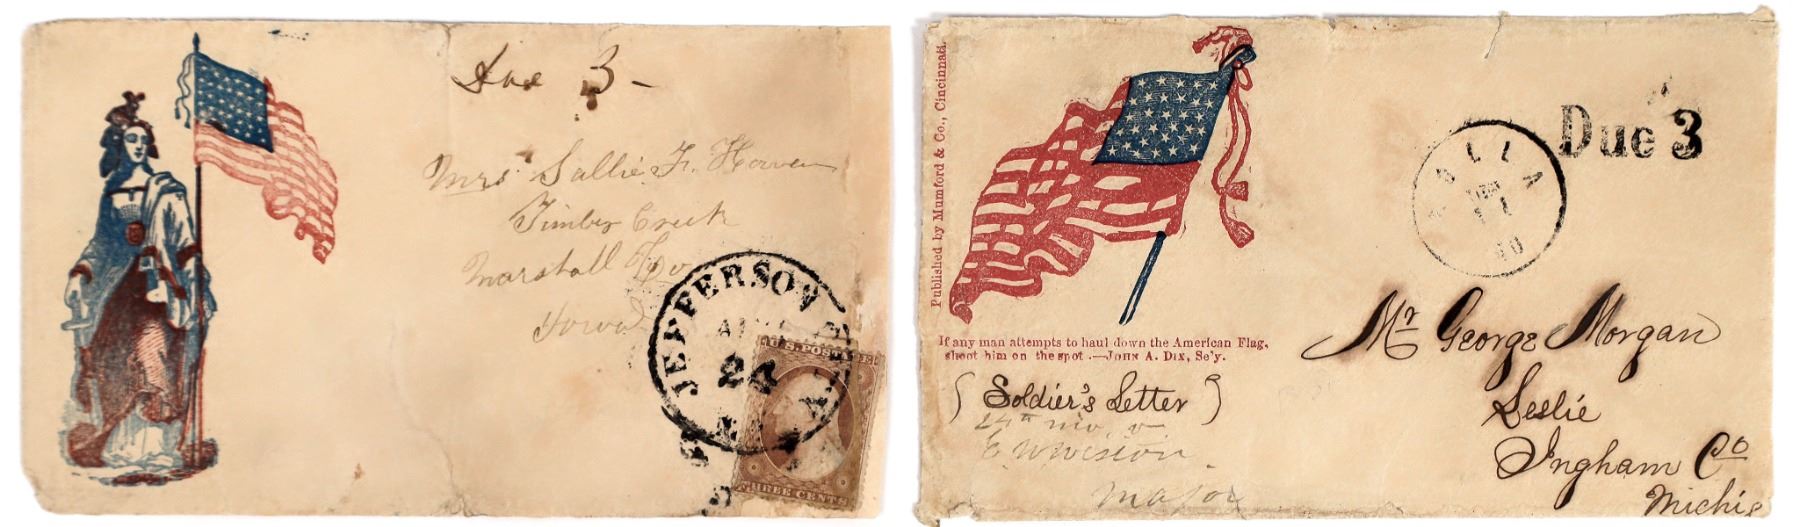 Due 3 -
Mrs Sallie F. Howen
Timber Creek
Marshall Co
Iowa
JEFFERSON
24
U.S. POSTAGE
THREE CENTS
Published by Mumford & Co., Cincinnati.
If any man attempts to haul down the American Flag,
shoot him on the spot.—JOHN A. DIX, Se'y.
(Soldier's Letter)
24th Mo. v
Major
Due 3
OLLA
Mr George Morgan
Leslie
Ingham Co
Michi